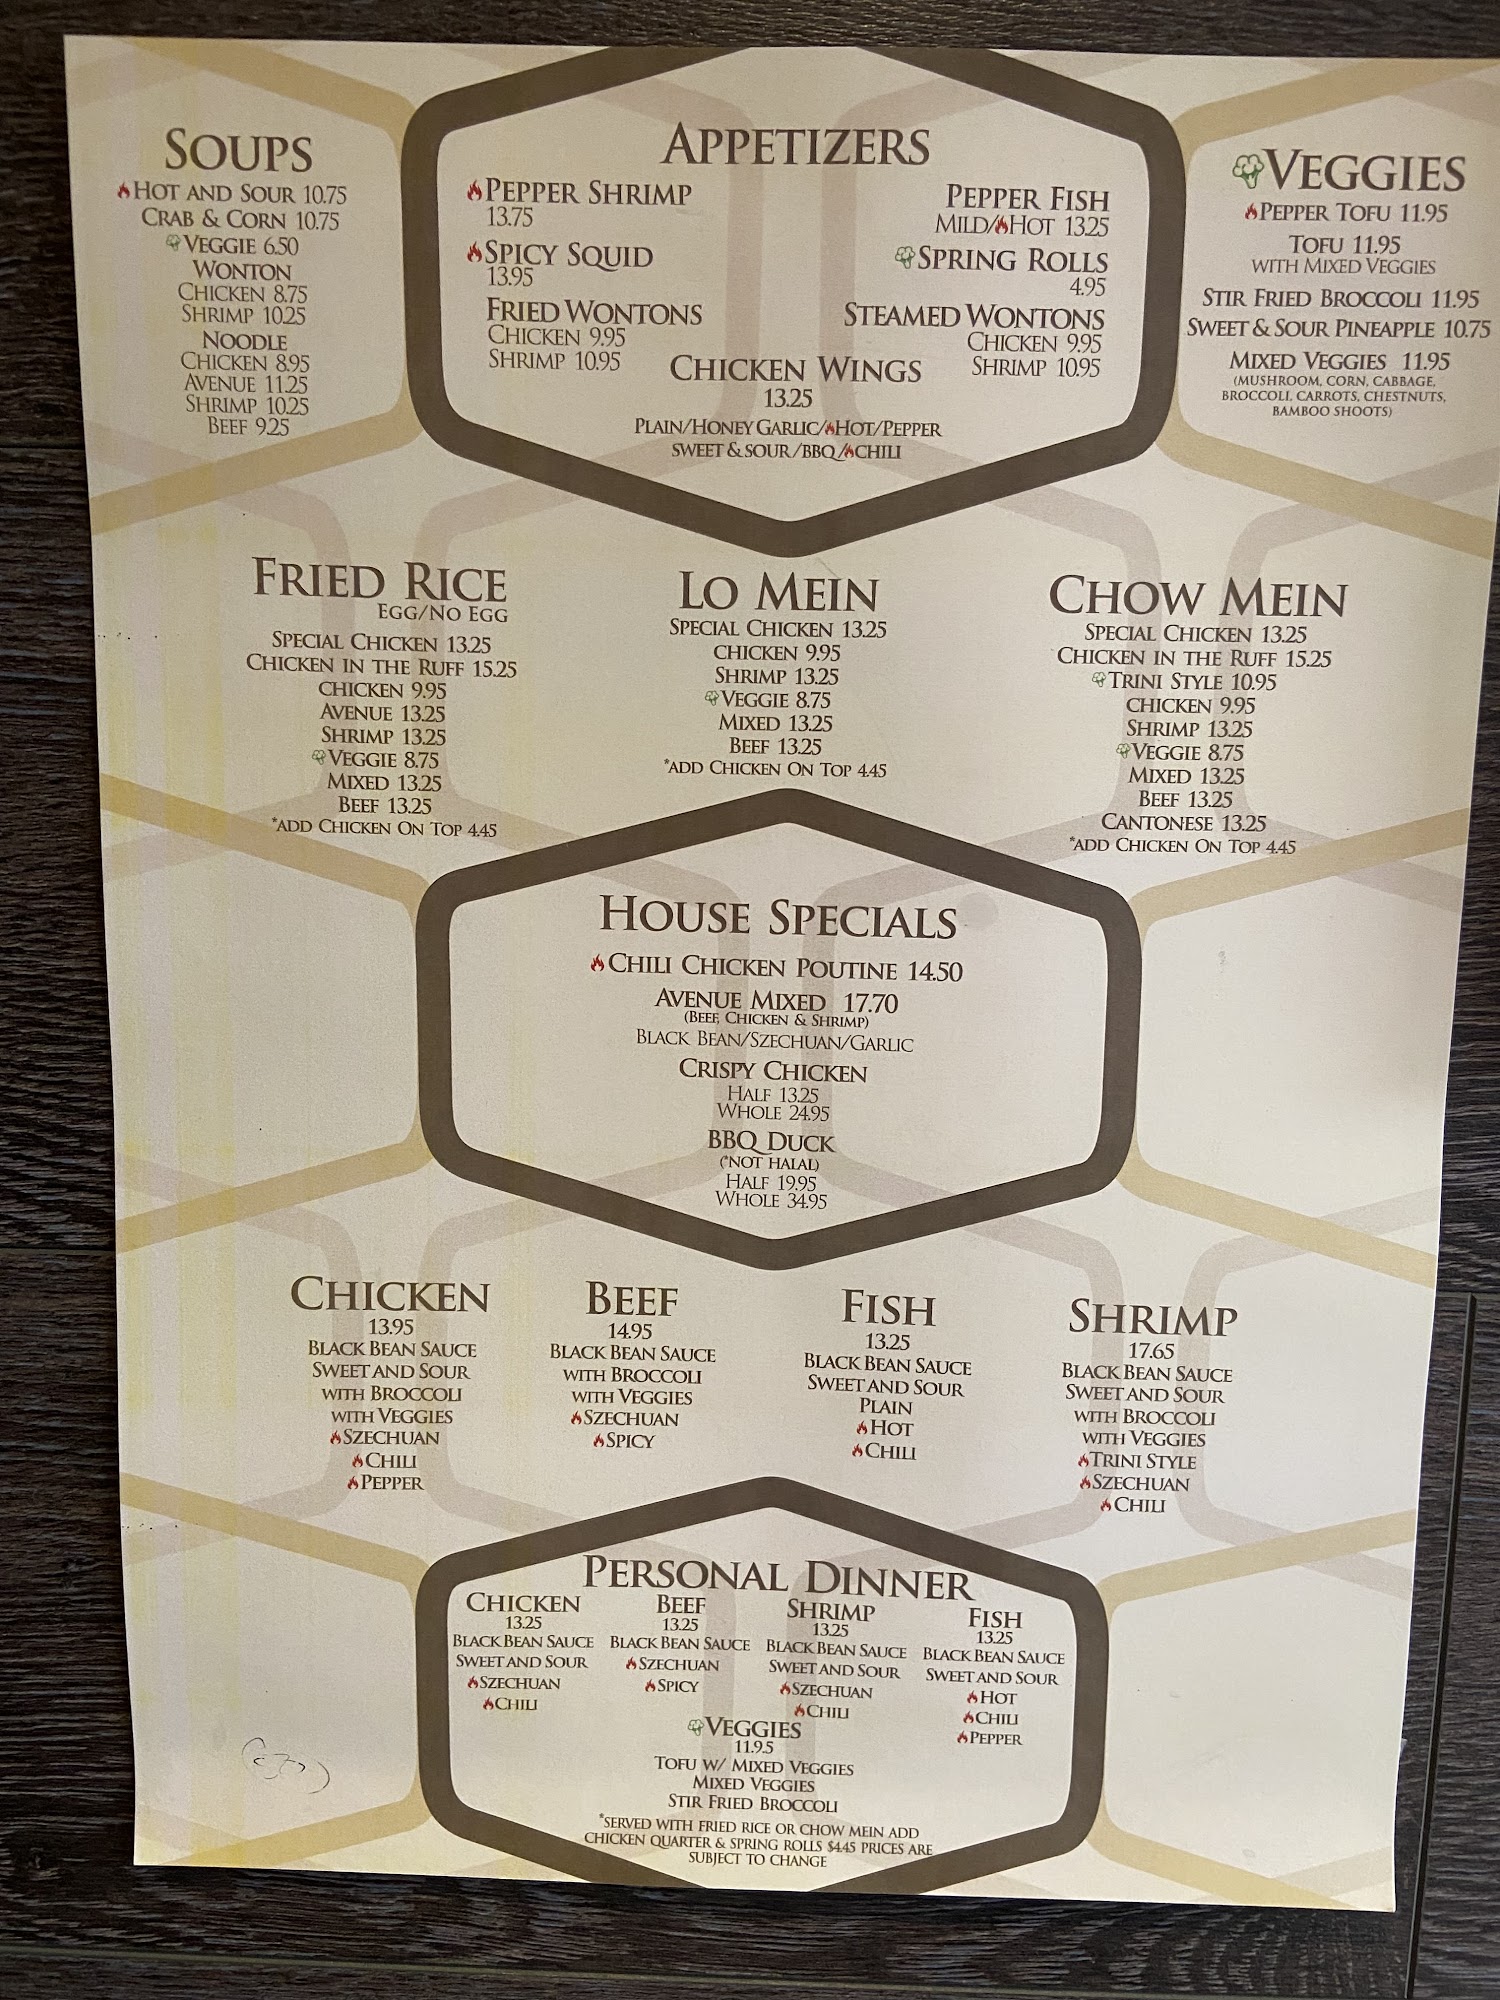 SOUPS
HOT AND SOUR 10.75
CRAB & CORN 10.75
VEGGIE 6.50
WONTON
CHICKEN 8.75
SHRIMP 10.25
NOODLE
CHICKEN 8.95
AVENUE 11.25
SHRIMP 10.25
BEEF 9.25
APPETIZERS
PEPPER SHRIMP
13.75
SPICY SQUID
13.95
FRIED WONTONS
CHICKEN 9.95
SHRIMP 10.95
PEPPER FISH
MILD/HOT 13.25
SPRING ROLLS
4.95
STEAMED WONTONS
CHICKEN 9.95
SHRIMP 10.95
CHICKEN WINGS
13.25
PLAIN/HONEY GARLIC/HOT/PEPPER
SWEET & SOUR/BBQ/CHILI
VEGGIES
PEPPER TOFU 11.95
TOFU 11.95
WITH MIXED VEGGIES
STIR FRIED BROCCOLI 11.95
SWEET & SOUR PINEAPPLE 10.75
MIXED VEGGIES 11.95
(MUSHROOM, CORN, CABBAGE,
BROCCOLI, CARROTS, CHESTNUTS,
BAMBOO SHOOTS)
FRIED RICE
EGG/NO EGG
SPECIAL CHICKEN 13.25
CHICKEN IN THE RUFF 15.25
CHICKEN 9.95
AVENUE 13.25
SHRIMP 13.25
VEGGIE 8.75
MIXED 13.25
BEEF 13.25
*ADD CHICKEN ON TOP 4.45
LO MEIN
SPECIAL CHICKEN 13.25
CHICKEN 9.95
SHRIMP 13.25
VEGGIE 8.75
MIXED 13.25
BEEF 13.25
*ADD CHICKEN ON TOP 4.45
CHOW MEIN
SPECIAL CHICKEN 13.25
CHICKEN IN THE RUFF 15.25
TRINI STYLE 10.95
CHICKEN 9.95
SHRIMP 13.25
VEGGIE 8.75
MIXED 13.25
BEEF 13.25
CANTONESE 13.25
*ADD CHICKEN ON TOP 4.45
HOUSE SPECIALS
CHILI CHICKEN POUTINE 14.50
AVENUE MIXED 17.70
(BEEF, CHICKEN & SHRIMP)
BLACK BEAN/SZECHUAN/GARLIC
CRISPY CHICKEN
HALF 13.25
WHOLE 24.95
BBQ DUCK
(*NOT HALAL)
HALF 19.95
WHOLE 34.95
CHICKEN
13.95
BLACK BEAN SAUCE
SWEET AND SOUR
WITH BROCCOLI
WITH VEGGIES
SZECHUAN
CHILI
PEPPER
BEEF
14.95
BLACK BEAN SAUCE
WITH BROCCOLI
WITH VEGGIES
SZECHUAN
SPICY
FISH
13.25
BLACK BEAN SAUCE
SWEET AND SOUR
PLAIN
HOT
CHILI
SHRIMP
17.65
BLACK BEAN SAUCE
SWEET AND SOUR
WITH BROCCOLI
WITH VEGGIES
TRINI STYLE
SZECHUAN
CHILI
PERSONAL DINNER
CHICKEN
13.25
BLACK BEAN SAUCE
SWEET AND SOUR
SZECHUAN
CHILI
BEEF
13.25
BLACK BEAN SAUCE
SZECHUAN
SPICY
SHRIMP
13.25
BLACK BEAN SAUCE
SWEET AND SOUR
SZECHUAN
CHILI
FISH
13.25
BLACK BEAN SAUCE
SWEET AND SOUR
HOT
CHILI
PEPPER
VEGGIES
11.9.5
TOFU W/ MIXED VEGGIES
MIXED VEGGIES
STIR FRIED BROCCOLI
*SERVED WITH FRIED RICE OR CHOW MEIN ADD
CHICKEN QUARTER & SPRING ROLLS $4.45 PRICES ARE
SUBJECT TO CHANGE